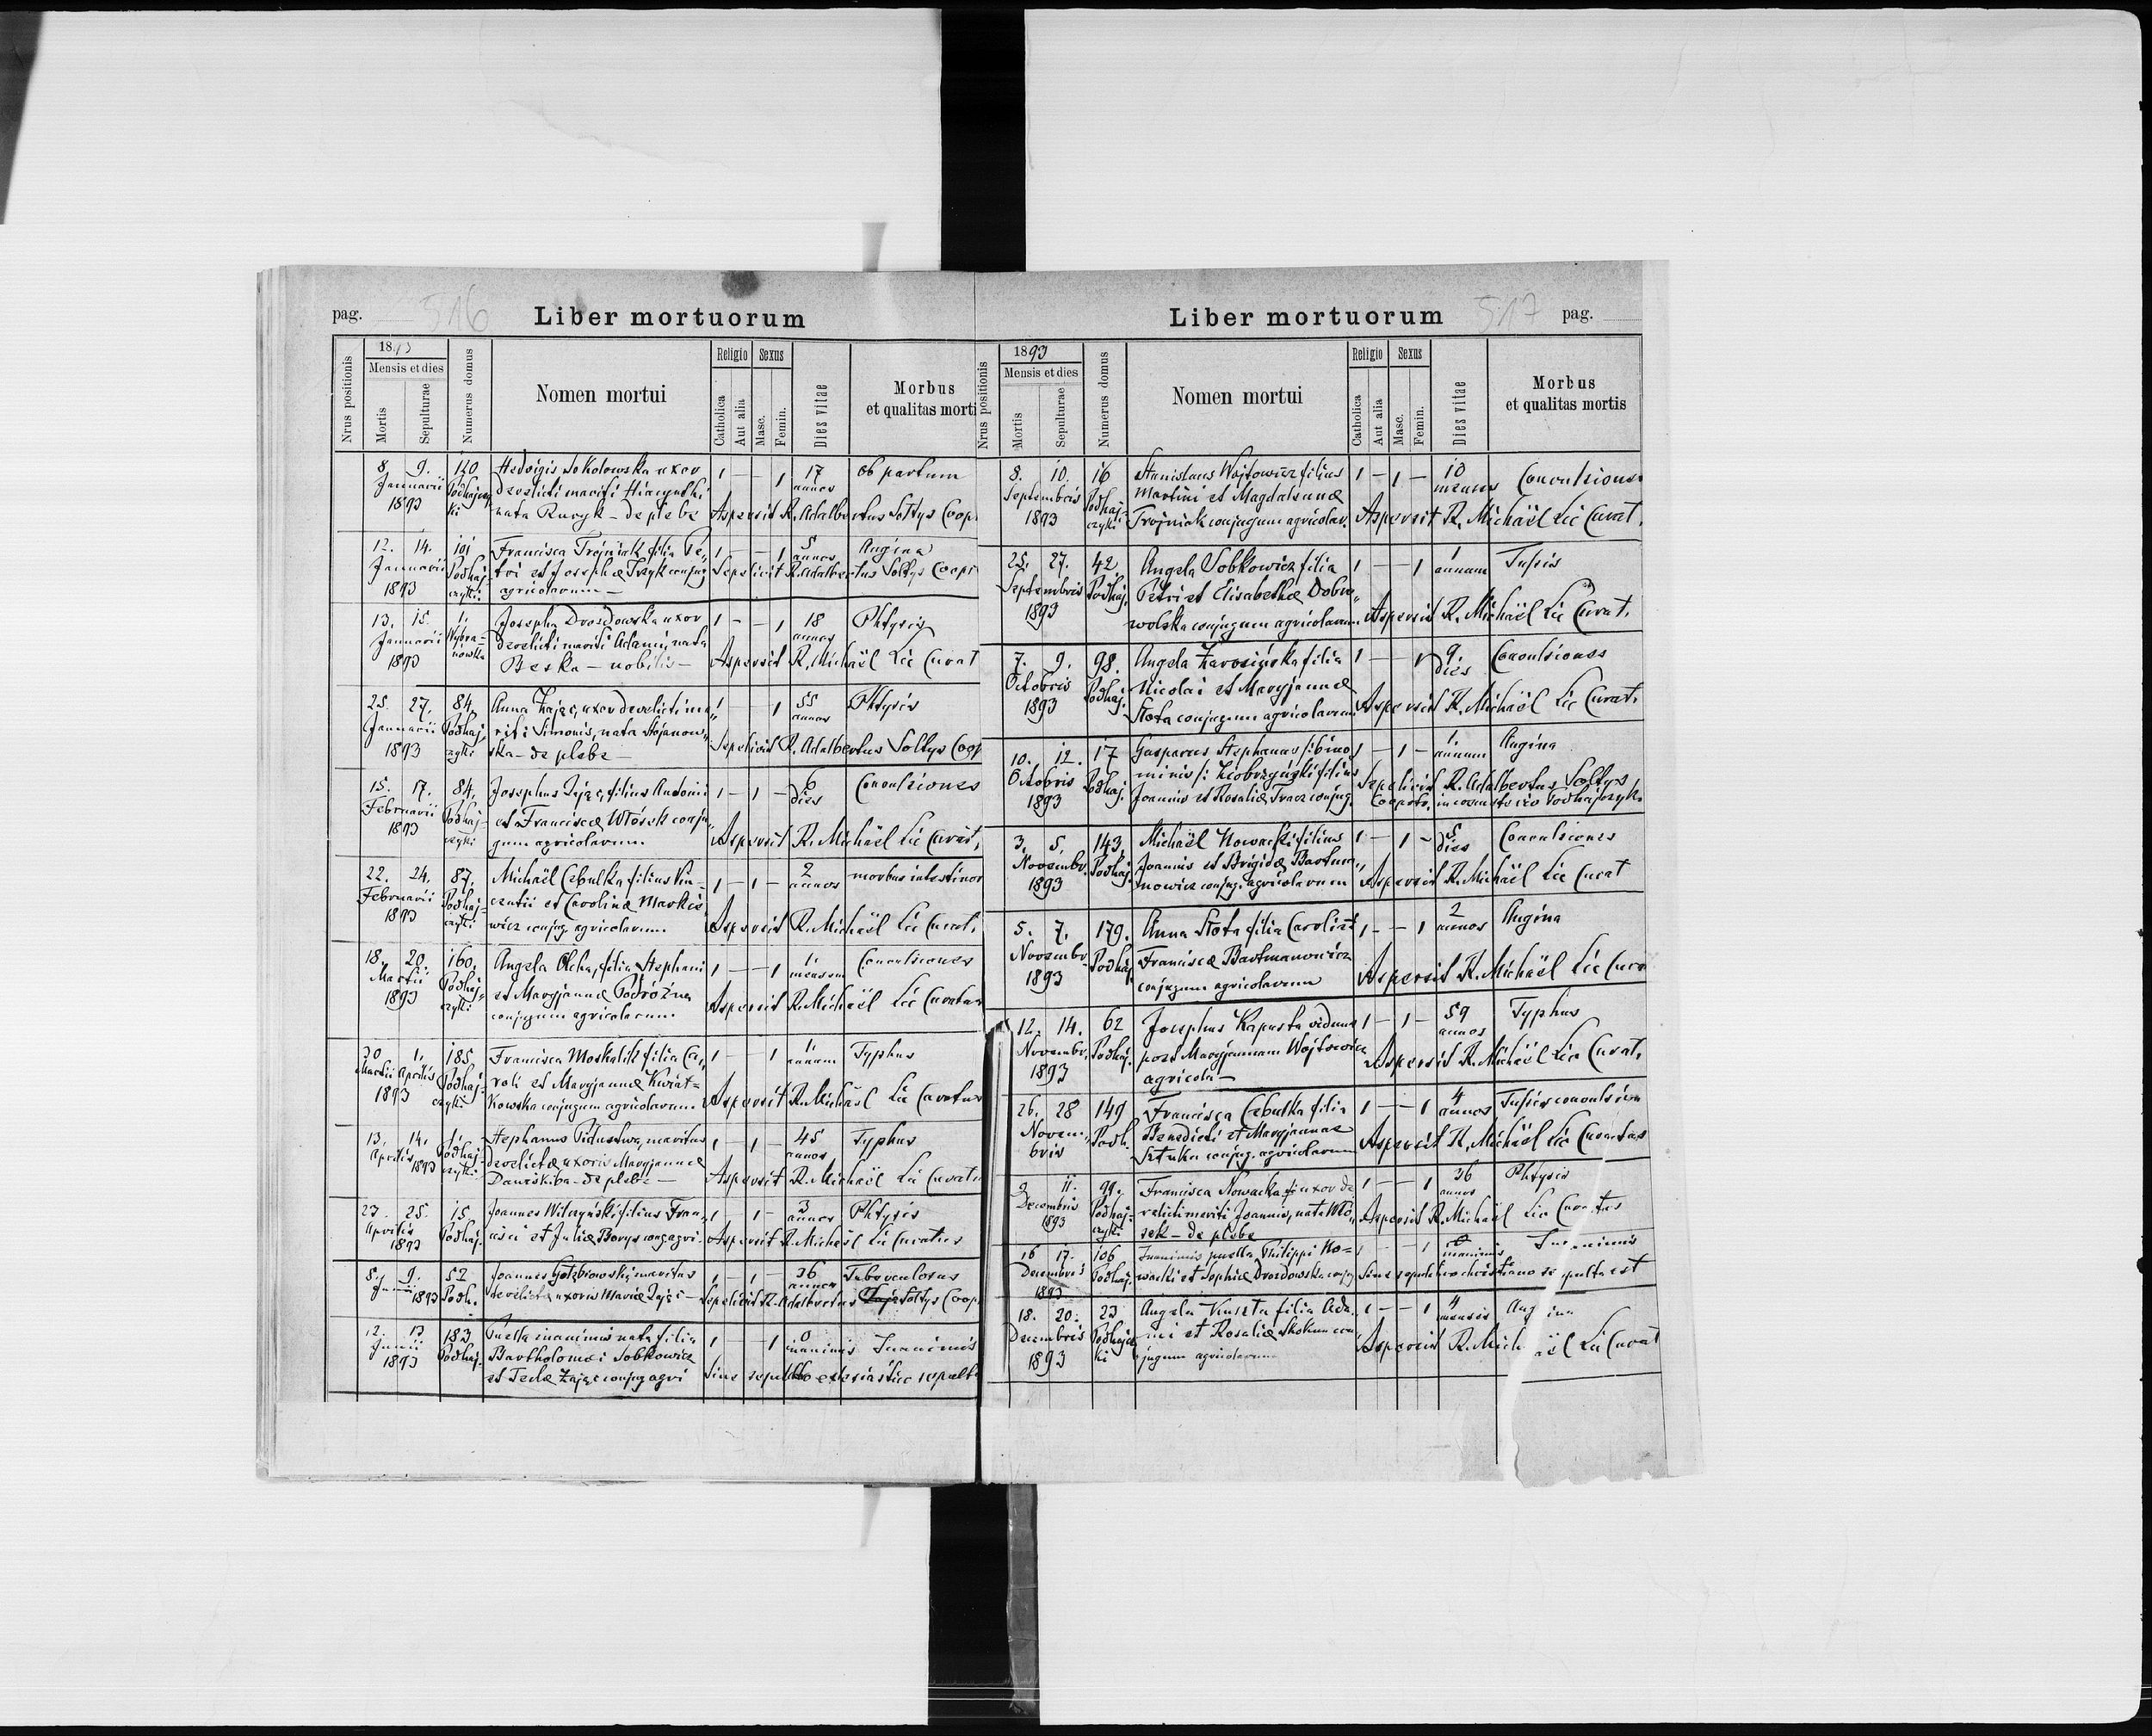 pag. 516 Liber mortuorum
1893 Religio Sexus
Mensis et dies
Nrus positionis Mortis Sepulturae Numerus domus Nomen mortui Catholica Aut alia Masc. Femin. Dies vitae Morbus
et qualitas morti
8. 9. 120 Hedvigis Sokolowska uxor 1 — — 1 17 ob partum
Januarii Podhajczy derelicti mariti Hiacynthi annos
1893 ki nata Ruryk — de plebe Aspersit R. Adalbertus Sołtys Coop
12. 14. 101 Francisca Trojniak filia Pe„ 1 — — 1 5 Angina
Januarii Podhaj- tri et Josephæ Tzyk conjug annos
1893 czyki agricolarum — Sepelivit R. Adalbertus Sołtys Coop
13. 15. 1. Josepha Drozdowska uxor 1 — — 1 18 Phtysis
Januarii Wybra- derelicti mariti Adami, nata annos
1893 nowka Beska — nobilis — Aspersit R. Michaël Lic Curat
25. 27. 84. Anna Zając, uxor derelicti ma„ 1 — — 1 55 Phtysis
Januarii Podhaj- riti Simonis, nata Stojanow„ annos
1893 czyki ska — de plebe — Sepelivit R. Adalbertus Sołtys Coop
15. 17. 84. Josephus Zając, filius Antonii 1 — 1 — 6 Convulsiones
Februarii Podhaj- et Franciscæ Włosek conju„ dies
1893 czyki gum agricolarum Aspersit R. Michaël Lic Curat,
22. 24. 87. Michaël Cebulka filius Vin- 1 — 1 — 2 morbus intestinor
Februarii Podhaj- centii et Carolinæ Markie annos
1893 czyki wicz conjug. agricolarum Aspersit R. Michaël Lic Curat.
18. 20. 160. Angela Olcha, filia Stephani 1 — — 1 1 Convulsiones
Martii Podhaj- et Maryjannæ Podróżna mensem
1893 czyki conjugum agricolarum Aspersit R. Michaël Lic Curatus
30 1. 185. Francisca Moskalik filia Ca„ 1 — — 1 1 Typhus
Martii Aprilis Podhaj- roli et Maryjannæ Kwiat= annum
1893 czyki kowska conjugum agricolarum Aspersit R. Michaël Lic Curatus
13. 14. 1. Stephanus Piduschwa, maritus 1 — 1 — 45 Typhus
Aprilis Podhaj- derelictæ uxoris Maryjannæ annos
1893 czyki — de plebe — Aspersit R. Michaël Lic Curatus
23. 25. 15 Joannes Wilczyński filius Fran„ 1 — 1 — 3 Phtysis
Aprilis Podhaj. cisci et Juliæ Borys conj agri annos
1893 Aspersit R. Michaël Lic Curatus
8. 9. 52 Joannes Gołębiowski, maritus 1 — 1 — 36 Tuberculosus
1893 Podh. derelictæ uxoris Mariæ Zając — annos
Sepelivit R. Adalbertus Sołtys Coop.
12. 13 183. Puella inanimis nata filia 1 — — 1 0 Inanimis
Junii Podhaj. Bartholomæi Sobkowicz inanimis
1893 et Teclæ Zając conjug agri Sine
pag. 517 Liber mortuorum
1893 Religio Sexus
Mensis et dies
Nrus positionis Mortis Sepulturae Numerus domus Nomen mortui Catholica Aut alia Masc. Femin. Dies vitae Morbus
et qualitas mortis
8. 10. 16 Stanislaus Wojtowicz filius 1 — 1 — 10 Convulsiones
Septembris Podhaj- Martini et Magdalenæ menses
1893 czyki Trojniak conjugum agricolar. Aspersit R. Michaël Lic Curat.
25. 27. 42 Angela Sobkowicz filia 1 — — 1 1 Tusis
Septembris Podhaj. Petri et Elisabethæ Dobro„ annum
1893 wolska conjugum agricolarum Aspersit R. Michaël Lic Curat.
7. 9. 98. Angela Zarosińska filia 1 — — 1 9. Convulsiones
Octobris Podhaj. Nicolai et Maryjannæ dies
1893 Słota conjugum agricolarum Aspersit R. Michaël Lic Curat.
10. 12. 17 Gasparus Stephanus /: bino 1 — 1 — 1 Angina
Octobris Podhaj. minis :/ Ziobrzyński filius annum
1893 Joannis et Rosaliæ Tracz conjug. Sepelivit R. Adalbertus Sołtys
3. 5. 143. Michaël Nowacki filius 1 — 1 — 5 Convulsiones
Novembr. Podhaj. Joannis et Brigidæ Bartma„ dies
1893 nowicz conjug. agricolarum Aspersit R. Michaël Lic Curat
5. 7. 179. Anna Słota filia Caroli et 1 — — 1 2 Angina
Novembr. Podhaj. Franciscæ Bartmanowicz annos
1893 conjugum agricolarum Aspersit R. Michaël Lic Cura
12. 14. 62 Josephus Kapusta viduus 1 — 1 — 59 Typhus
Novembr. Podhaj. post Maryjannam Wojtowicz annos
1893 agricola — Aspersit R. Michaël Lic Curat.
26. 28 149 Francisca Cebulka filia 1 — — 1 4 Tusis convulsiva
Novem„ Podh. Benedicti et Maryjannæ annos
bris Sztuka conjug. agricolarum Aspersit R. Michaël Lic Curatus
9 11. 99. Francisca Nowacka uxor de 1 — — 1 36 Phtysis
Decembris Podhaj- relicti mariti Joannis, nata Wło„ annos
1893 czyki sek — de plebe Aspersit R. Michaël Lic Curatus
16 17. 106 Inanimis puella Philippi No= 1 — — 1 inanimis Inanimis
Decembris Podhaj. wacki et Sophiæ Drozdowska conjug Sine sepulta est
1893
18. 20. 23 Angela filia Ada. 1 — — 1 4 Angina
Decembris Podhajczy mi et Rosaliæ Skokun con menses
1893 ki jugum agricolarum Aspersit R. Michaël Lic Curat